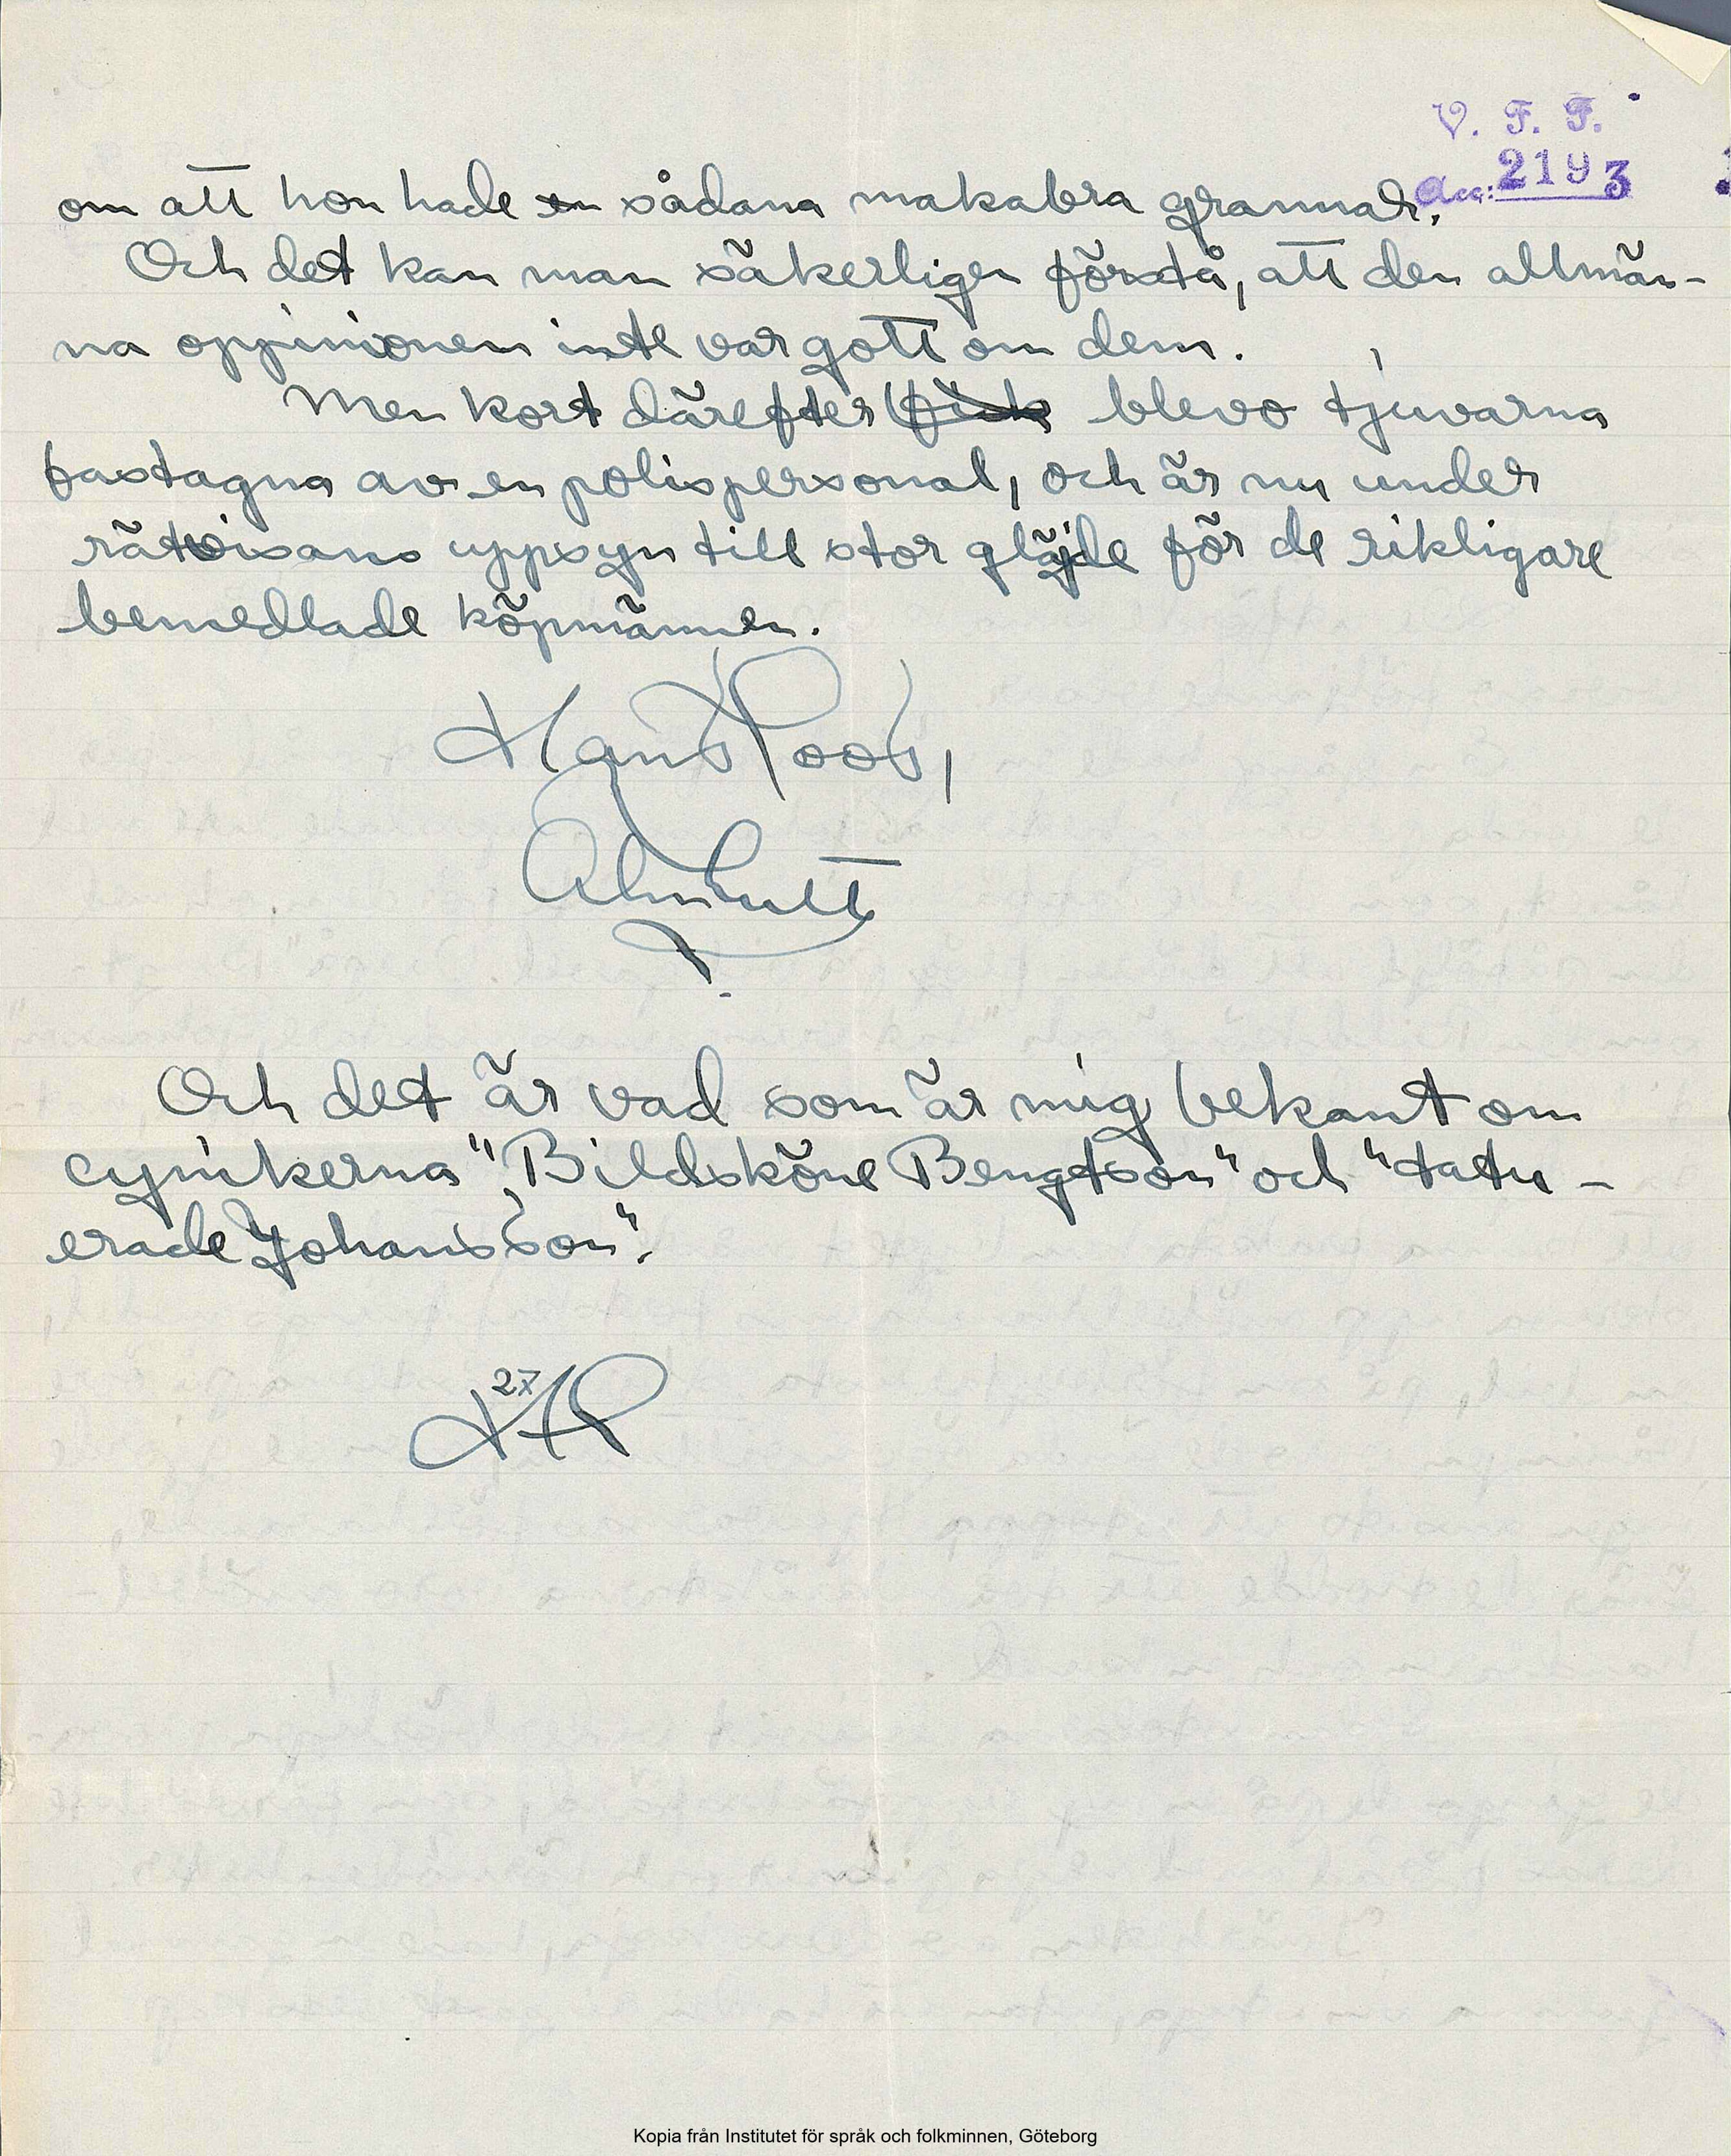 V. F. F.
Acc: 2193
om att hon hade en sådana makabra grannar.
Och det kan man säkerligen förstå, att den allmän-
na oppinionen inte var gott om dem.
Men kort därefter fick blevo tjuvarna
fastagna av en polispersonal, och är nu under
rätvisans uppsyn till stor gläjde för de rikligare
bemedlade köpmännen.
Hans Poos,
Älmhult
Och det är vad som är mig bekant om
cynikerna "Bildsköne Bengtson" och "tatu-
erade Johansson".
27
HP
Kopia från Institutet för språk och folkminnen, Göteborg